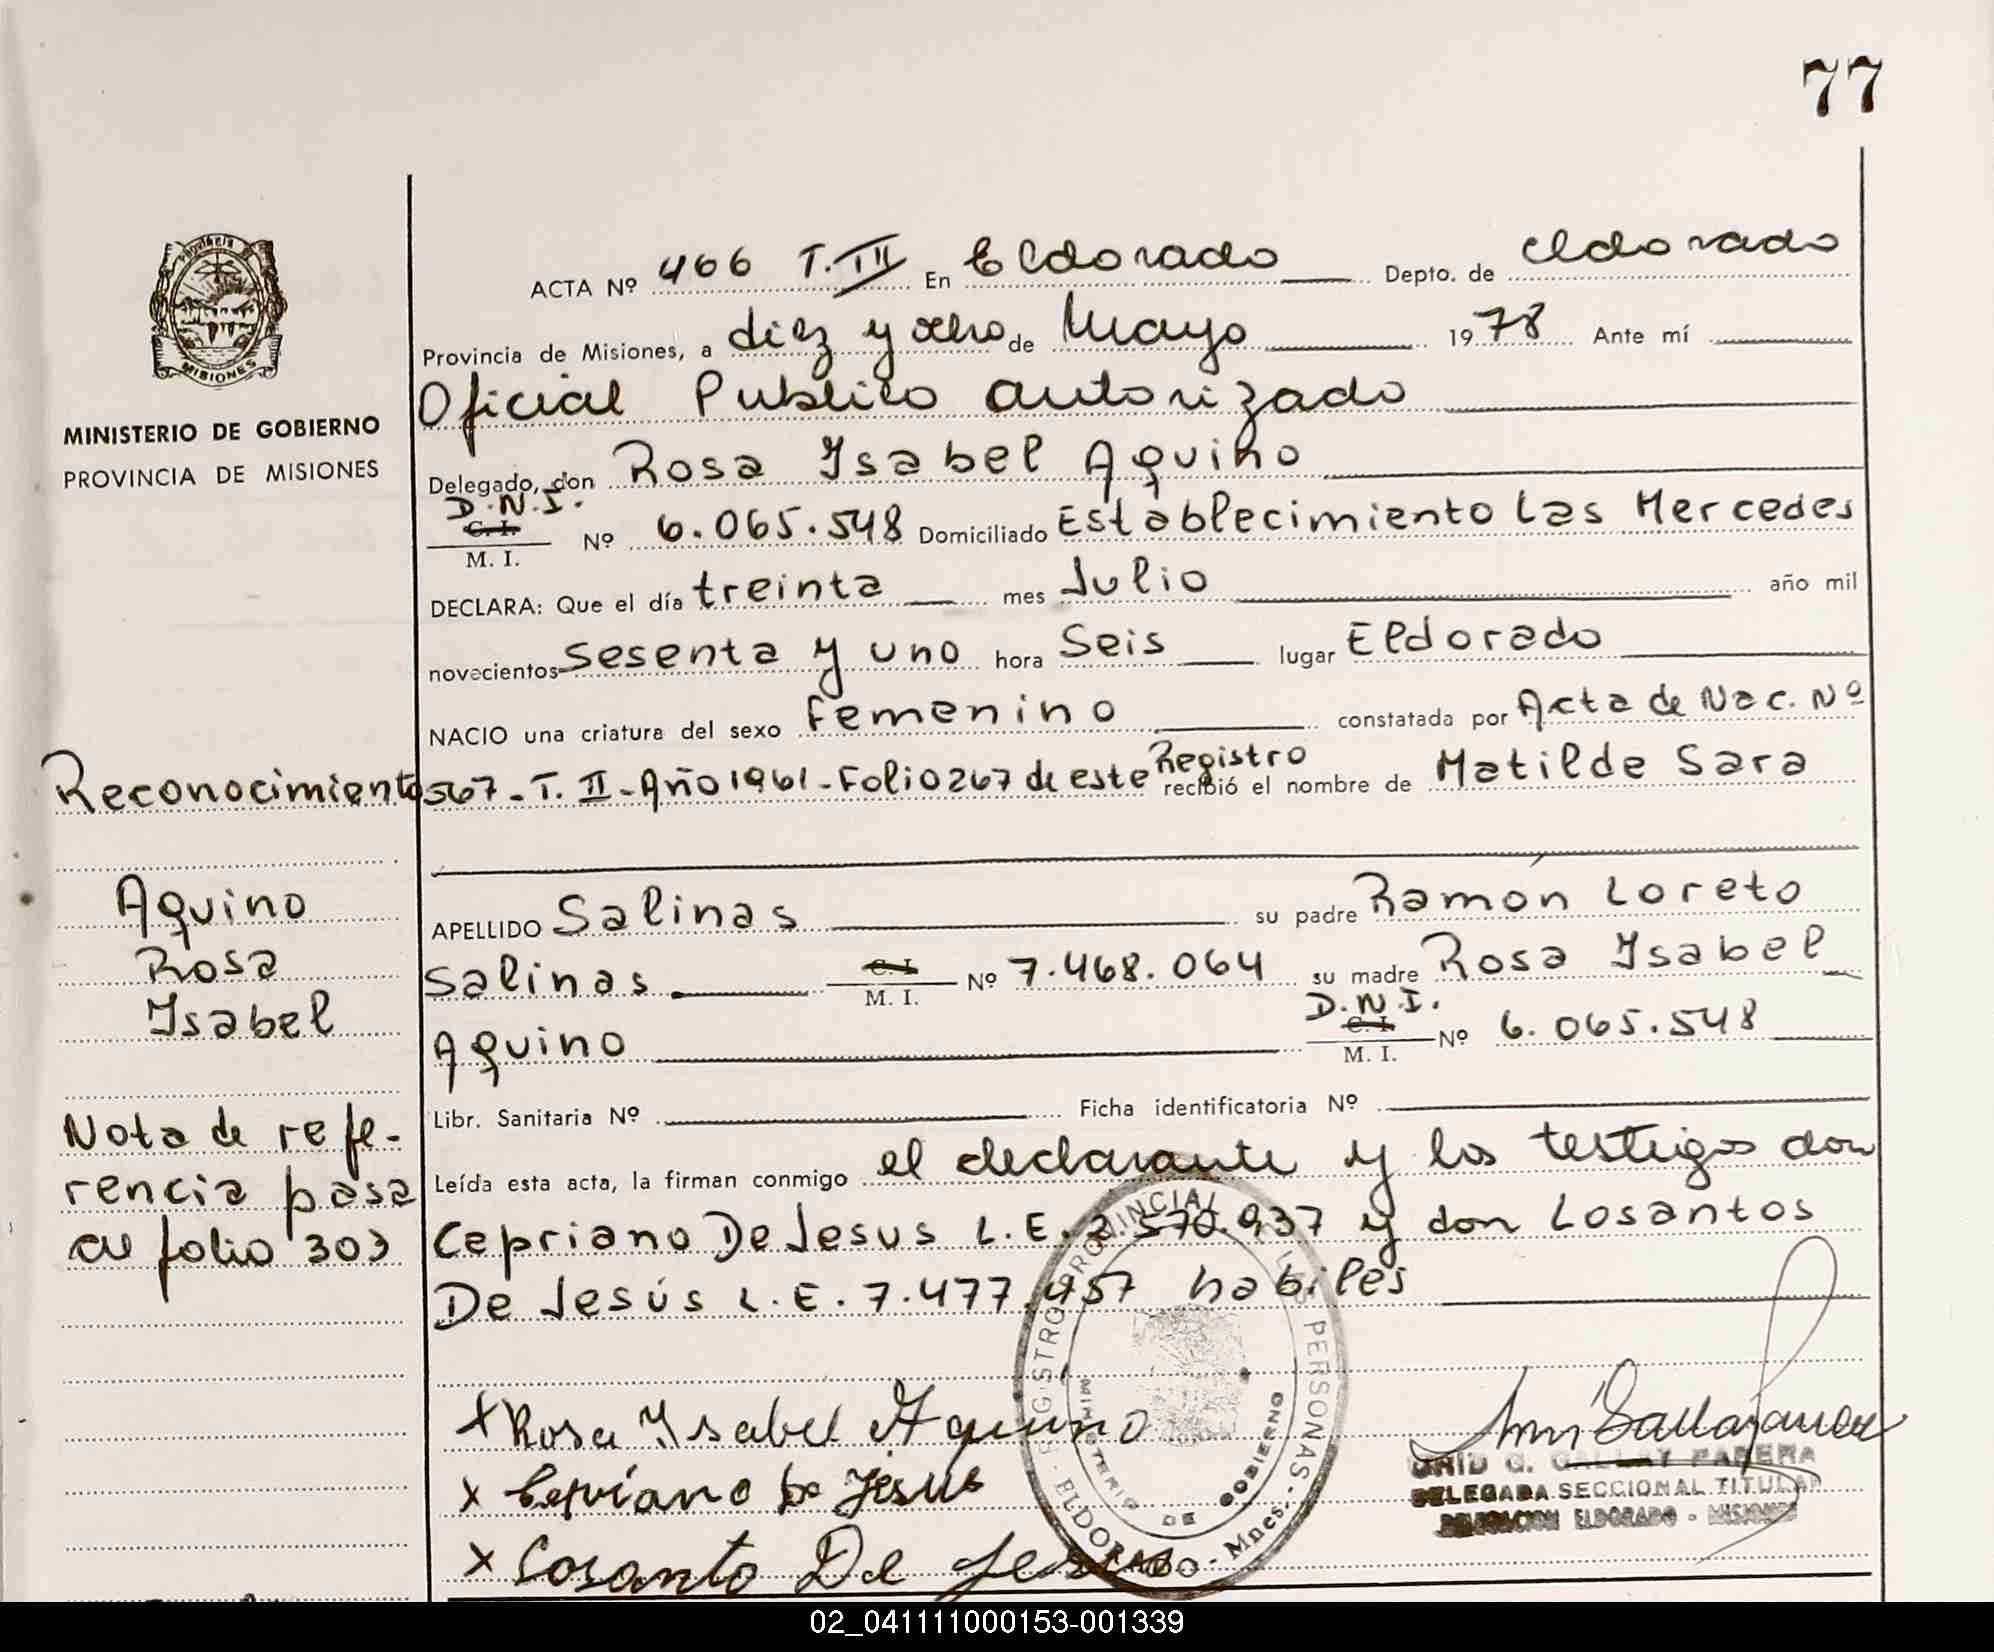 77
Provincia
MISIONES
MINISTERIO DE GOBIERNO
PROVINCIA DE MISIONES
ACTA Nº 466 T. III En Eldorado Depto. de Eldorado
Provincia de Misiones, a diez y ocho de Mayo 1978 Ante mí
Oficial Publico autorizado
Delegado, don Rosa Ysabel Aquino
D.N.I.
C. I.
M. I. Nº 6.065.548 Domiciliado Establecimiento Las Mercedes
DECLARA: Que el día treinta mes Julio año mil
novecientos sesenta y uno hora Seis lugar Eldorado
NACIO una criatura del sexo femenino constatada por Acta de Nac. Nº
567-T. II-Año 1961-Folio 267 de este Registro recibió el nombre de Matilde Sara
APELLIDO Salinas su padre Ramón Loreto
Salinas C. I. M. I. Nº 7.468.064 su madre Rosa Ysabel
Aquino D.N.I. C. I. M. I. Nº 6.065.548
Libr. Sanitaria Nº Ficha identificatoria Nº
Leída esta acta, la firman conmigo el declarante y los testigos don
Cepriano De Jesus L.E. 2.570.937 y don Losantos
De Jesús L.E. 7.477.457 habiles
Reconocimiento
Aquino
Rosa
Ysabel
Nota de refe-
rencia pasa
al folio 303
x Rosa Ysabel Aquino
x Cepriano De Jesus
x Losanto De Jesus
REGISTRO PROVINCIAL DE LAS PERSONAS - ELDORADO - Mnes.
MINISTERIO DE GOBIERNO
G. GALLAY PARERA
DELEGADA SECCIONAL TITULAR
DELEGACION ELDORADO - MISIONES
02_041111000153-001339